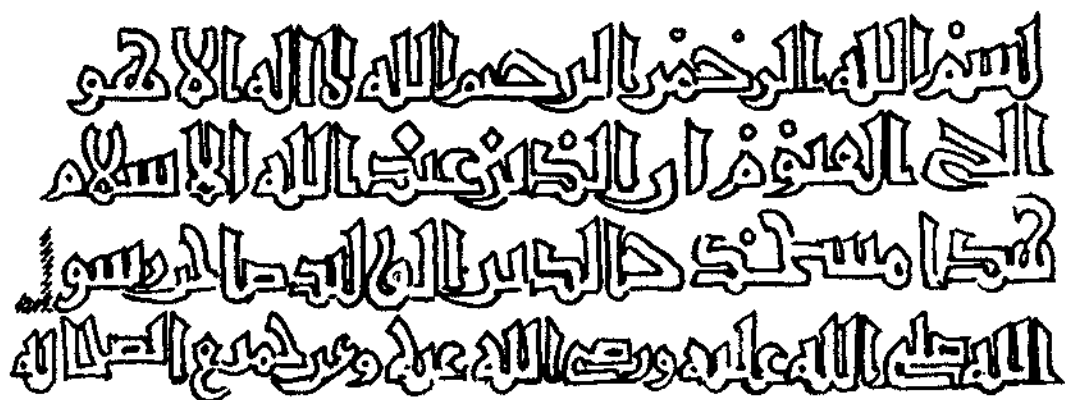 بسم الله الرحمن الرحيم الله لا اله الا هو
الحي القيوم ان الدين عند الله الاسلام
هذا مسجد خالد بن الوليد صاحب رسول
الله صلى الله عليه ورضي الله عنه وعن جميع الصحابة